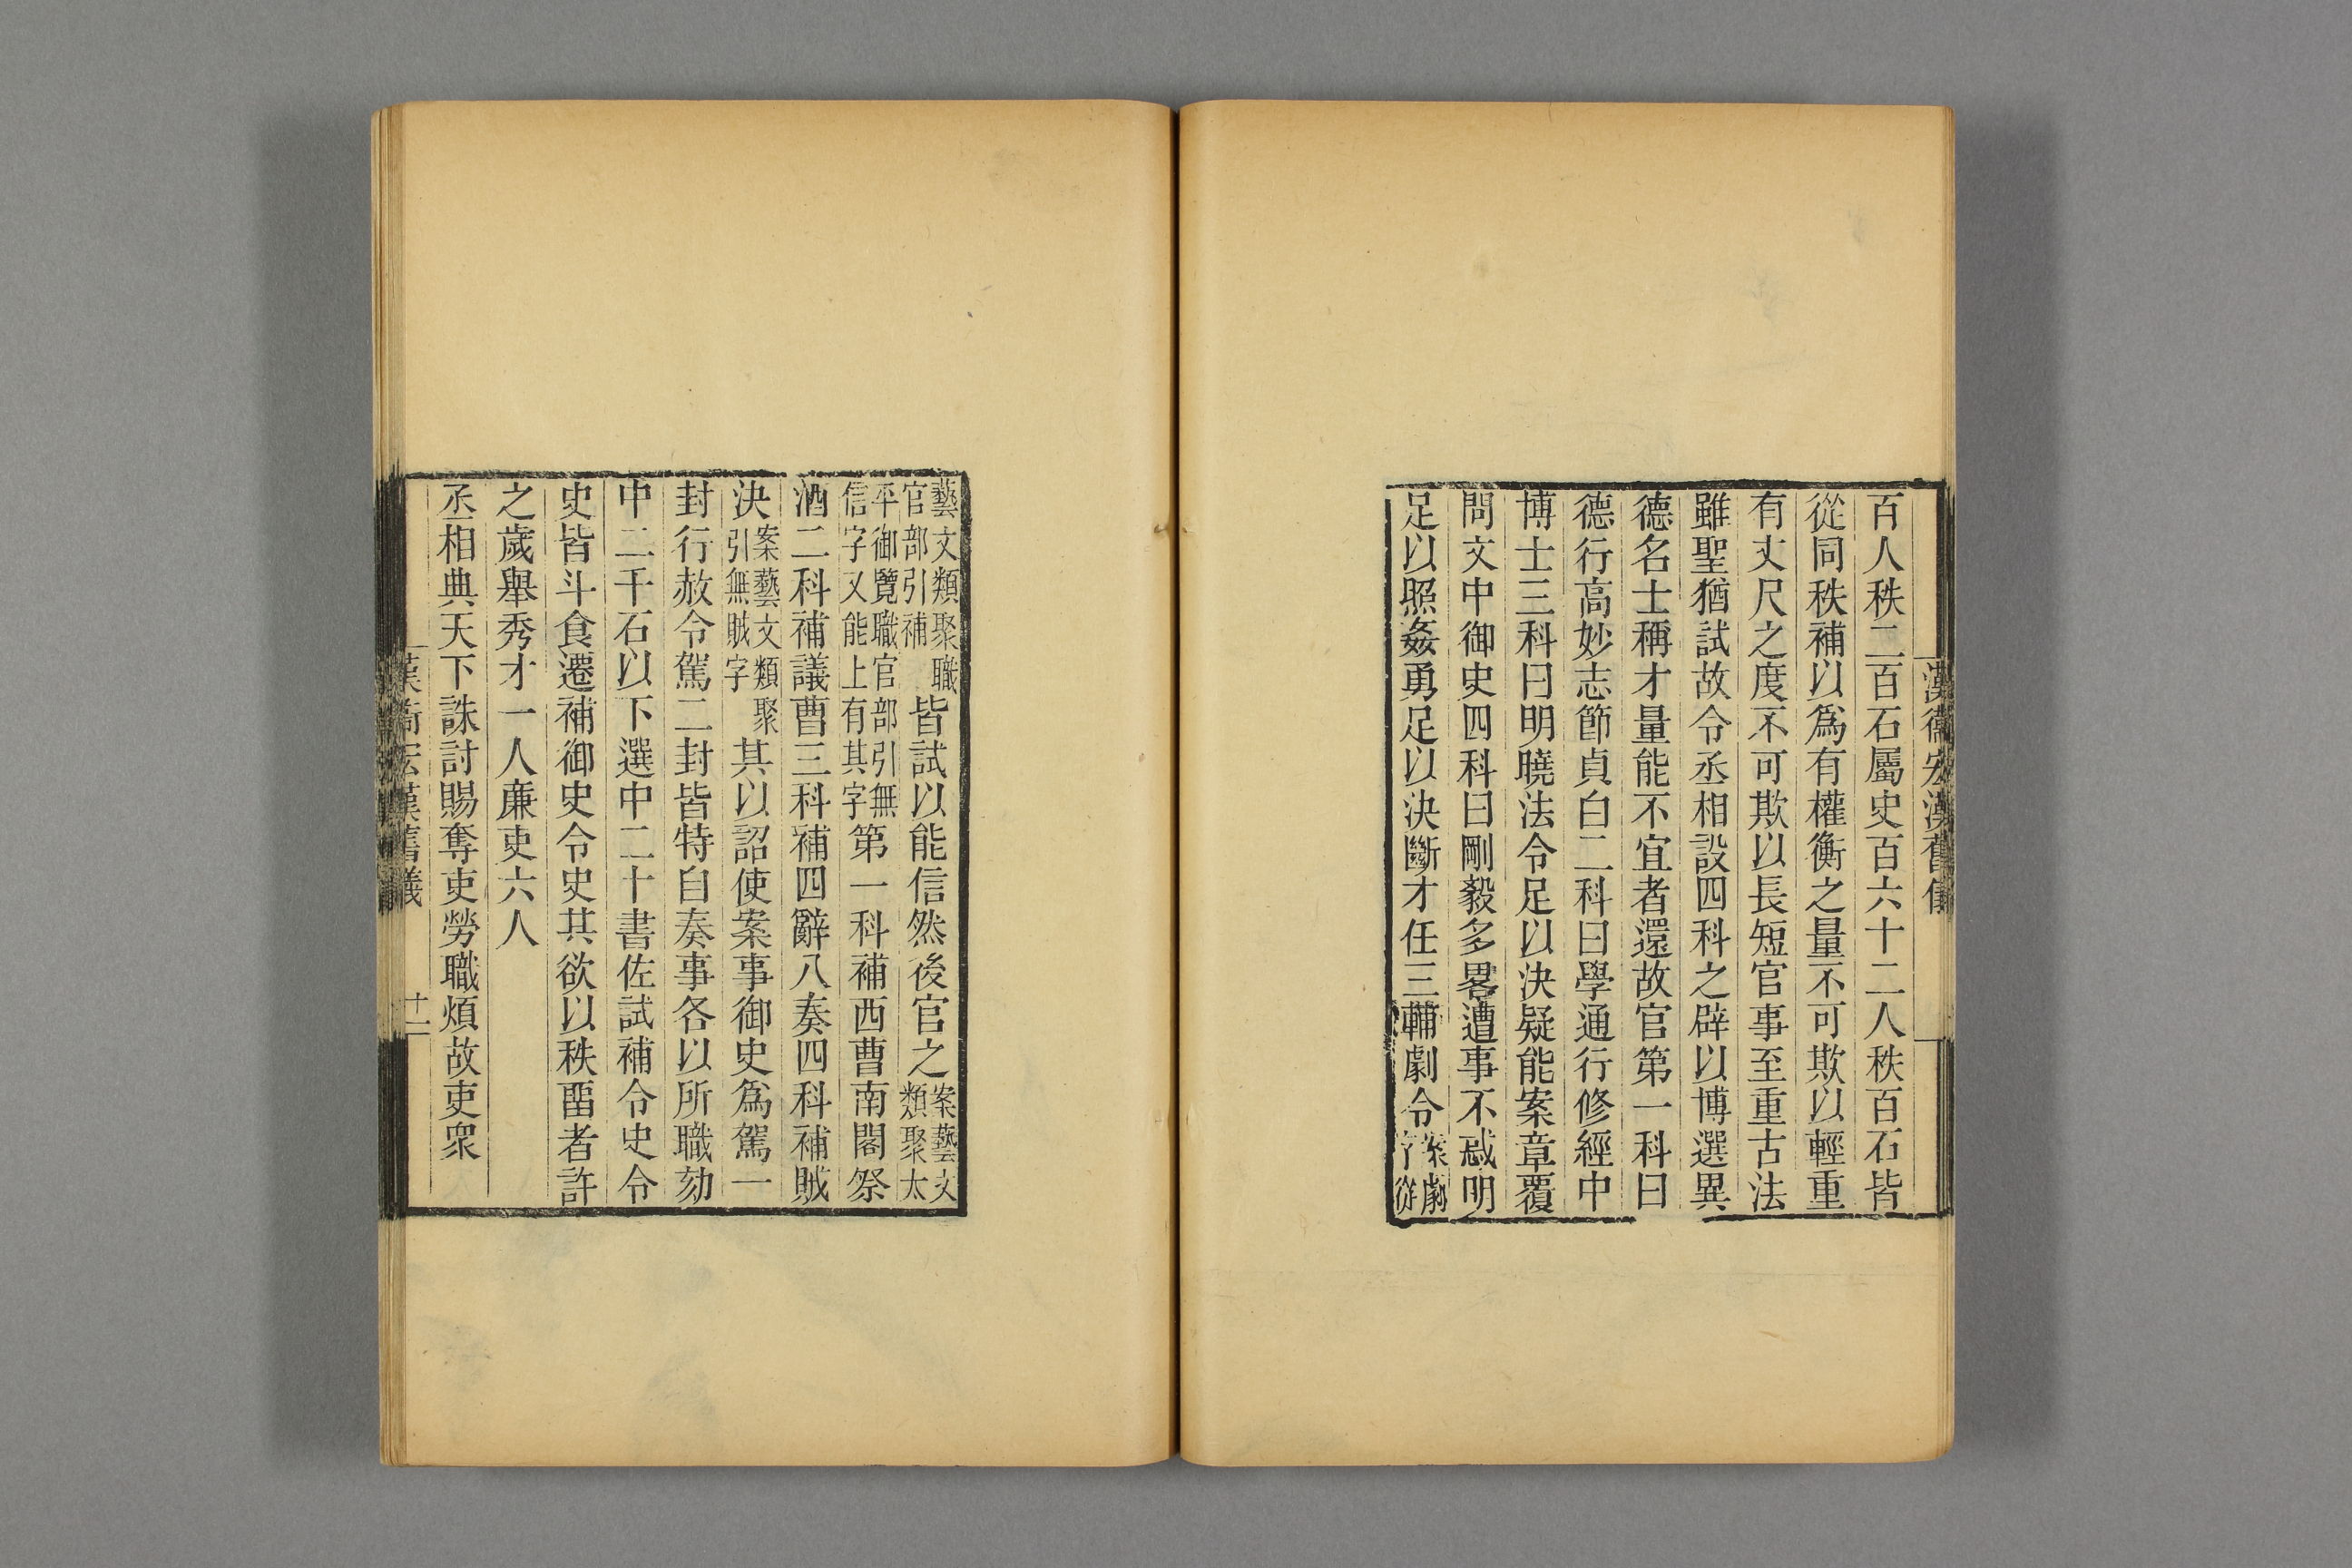 漢衞宏漢舊儀
百人秩二百石屬史百六十二人秩百石皆
從同秩補以爲有權衡之量不可欺以輕重
有丈尺之度不可欺以長短官事至重古法
雖聖猶試故令丞相設四科之辟以博選異
德名士稱才量能不宜者還故官第一科曰
德行高妙志節貞白二科曰學通行修經中
博士三科曰明曉法令足以決疑能案章覆
問文中御史四科曰剛毅多畧遭事不惑明
足以照姦勇足以決斷才任三輔劇令案劇字從
藝文類聚職官部引補皆試以能信然後官之案藝文類聚太
平御覽職官部引無信字又能上有其字第一科補西曹南閤祭
酒二科補議曹三科補四辭八奏四科補賊
決案藝文類聚引無賊字其以詔使案事御史爲駕一
封行赦令駕二封皆特自奏事各以所職劾
中二千石以下選中二十書佐試補令史令
史皆斗食遷補御史令史其欲以秩留者許
之歲舉秀才一人廉吏六人
丞相典天下誅討賜奪吏勞職煩故吏衆
漢衞宏漢舊儀 十二